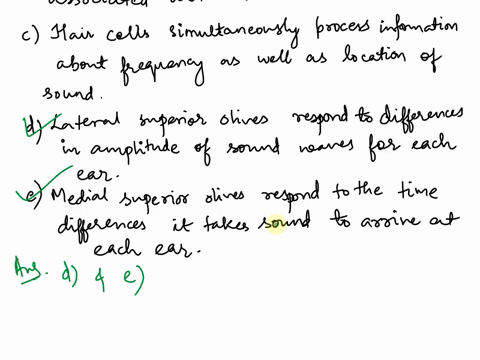 c) Hair cells simultaneously process information
about frequency as well as location of
sound.
d) Lateral superior olives respond to differences
in amplitude of sound waves for each
ear.
e) Medial superior olives respond to the time
differences it takes sound to arrive at
each ear.
Ans. d) & e)